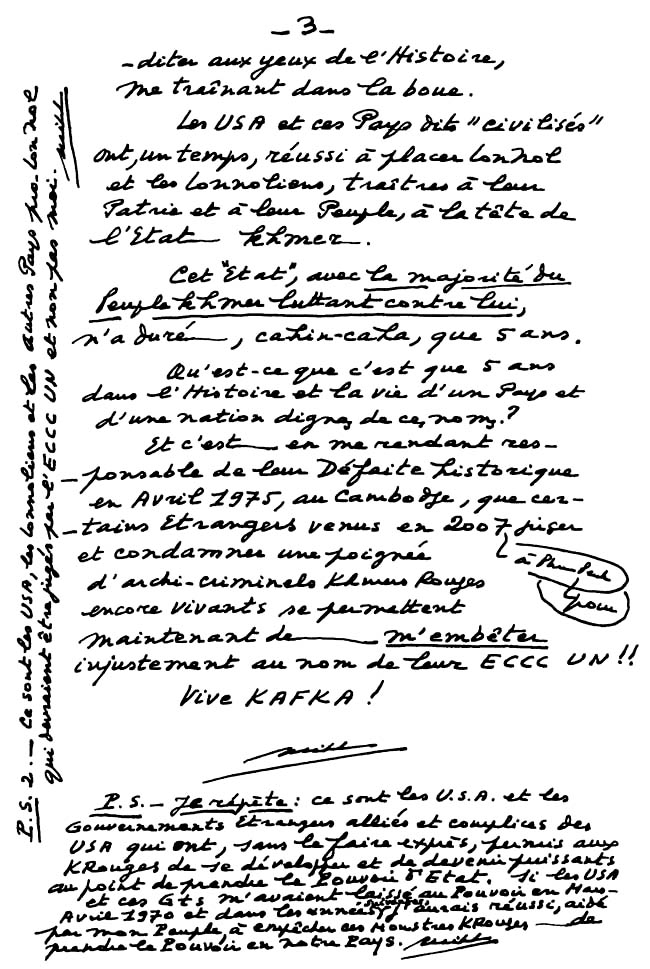 - 3 -
-diter aux yeux de l'Histoire,
me traînant dans la boue.
Les USA et ces Pays dits "civilisés"
ont, un temps, réussi à placer Lon Nol
et les lonnoliens, traîtres à leur
Patrie et à leur Peuple, à la tête de
l'Etat khmer.
Cet "Etat", avec la majorité du
Peuple khmer luttant contre lui,
n'a duré, cahin-caha, que 5 ans.
Qu'est-ce que c'est que 5 ans
dans l'Histoire et la vie d'un Pays et
d'une nation dignes de ce nom ?
Et c'est en me rendant res-
-ponsable de leur Défaite historique
en Avril 1975, au Cambodge, que cer-
-tains Etrangers venus en 2007 juger
à Phn Penh
pour
et condamner une poignée
d'archi-criminels Khmers Rouges
encore vivants se permettent
maintenant de m'embêter
injustement au nom de leur ECCC UN !!
Vive KAFKA !
P.S. - Je répète : ce sont les U.S.A. et les
Gouvernements Etrangers alliés et complices des
USA qui ont, sans le faire exprès, permis aux
KRouges de se développer et de devenir puissants
au point de prendre le Pouvoir d'Etat. Si les USA
et ces Gts m'avaient laissé au Pouvoir en Mars-
Avril 1970 et dans les années suivantes j'aurais réussi, aidé
par mon Peuple, à empêcher ces Monstres KRouges de
prendre le Pouvoir en notre Pays.
P.S. 2. - Ce sont les USA, les lonnoliens et les autres Pays pro-Lon Nol
qui devraient être jugés par l'ECCC UN et non pas moi.